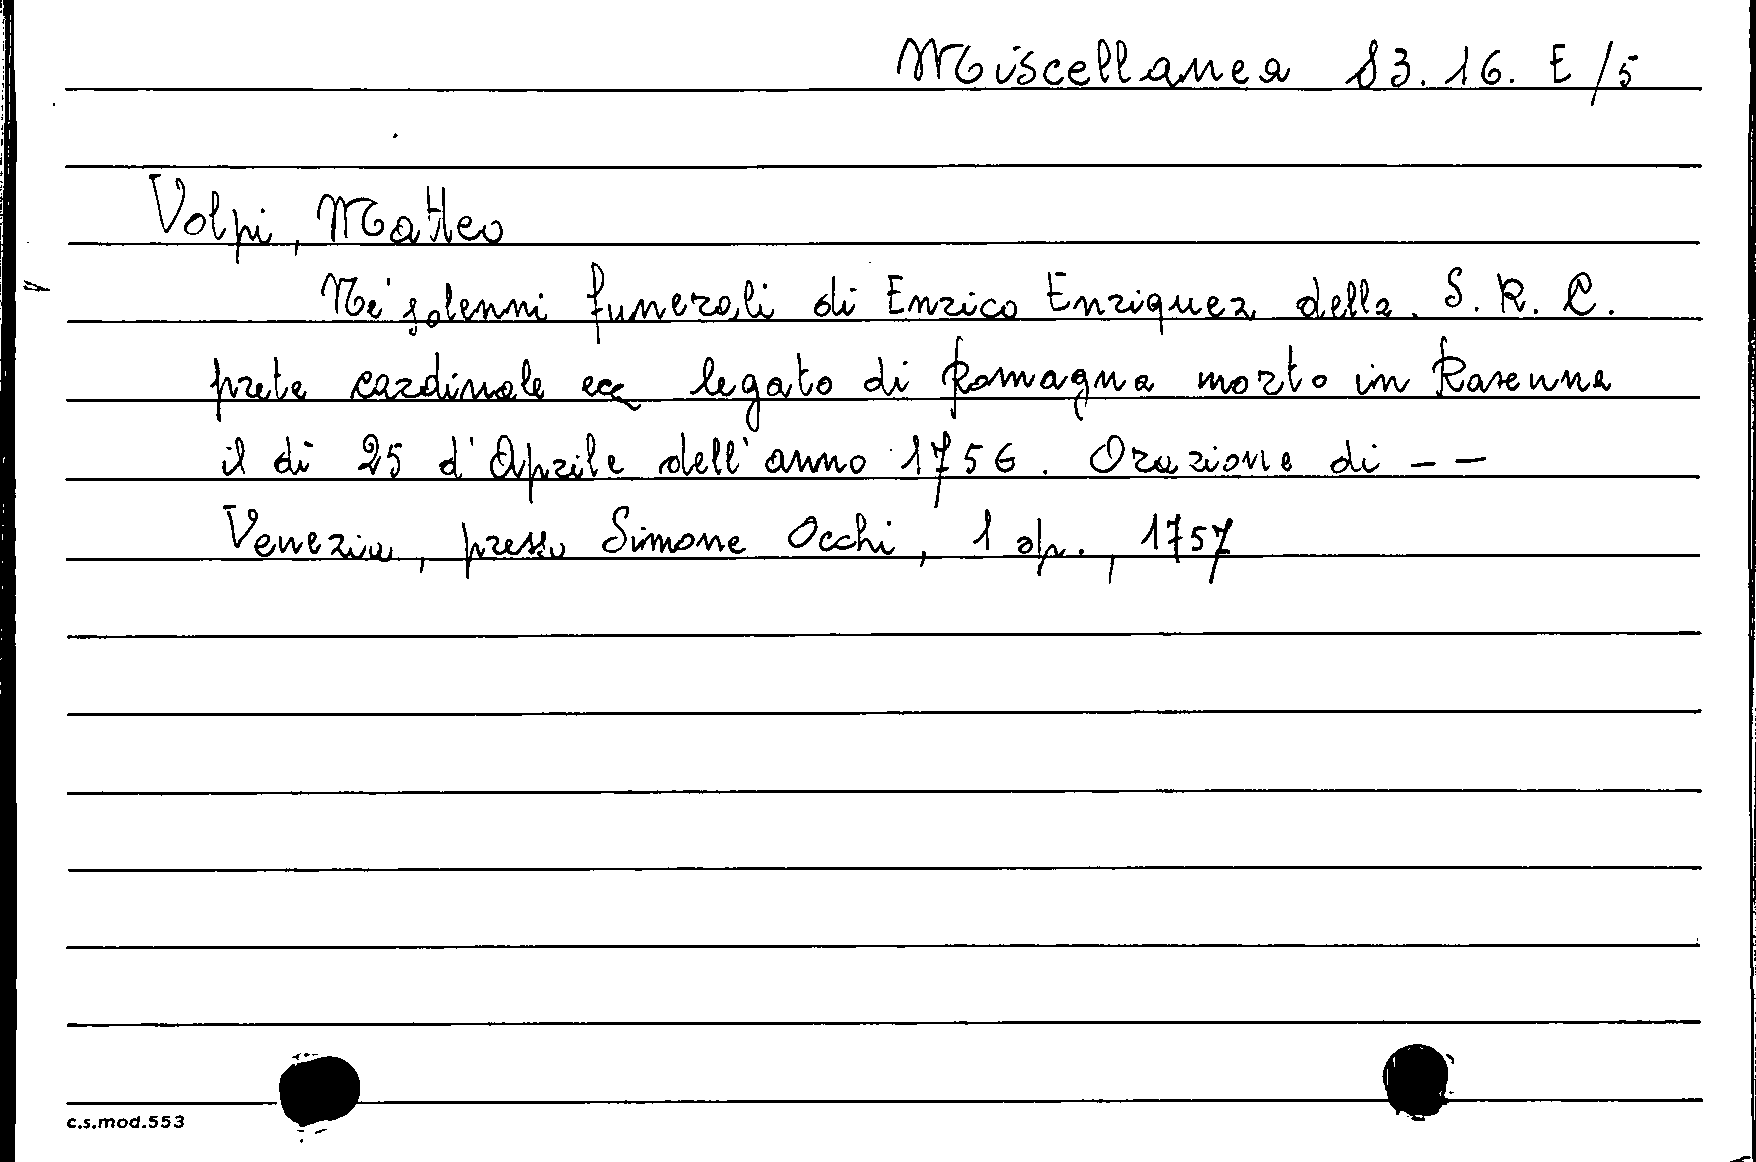 Miscellanea 83. 16. E/5
Volpi, Matteo
Ne' solenni funerali di Enrico Enriquez della S. R. C.
prete cardinale ecc legato di Romagna morto in Ravenna
il dì 25 d'Aprile dell'anno 1756. Orazione di --
Venezia, presso Simone Occhi, 1 op., 1757
c.s.mod.553